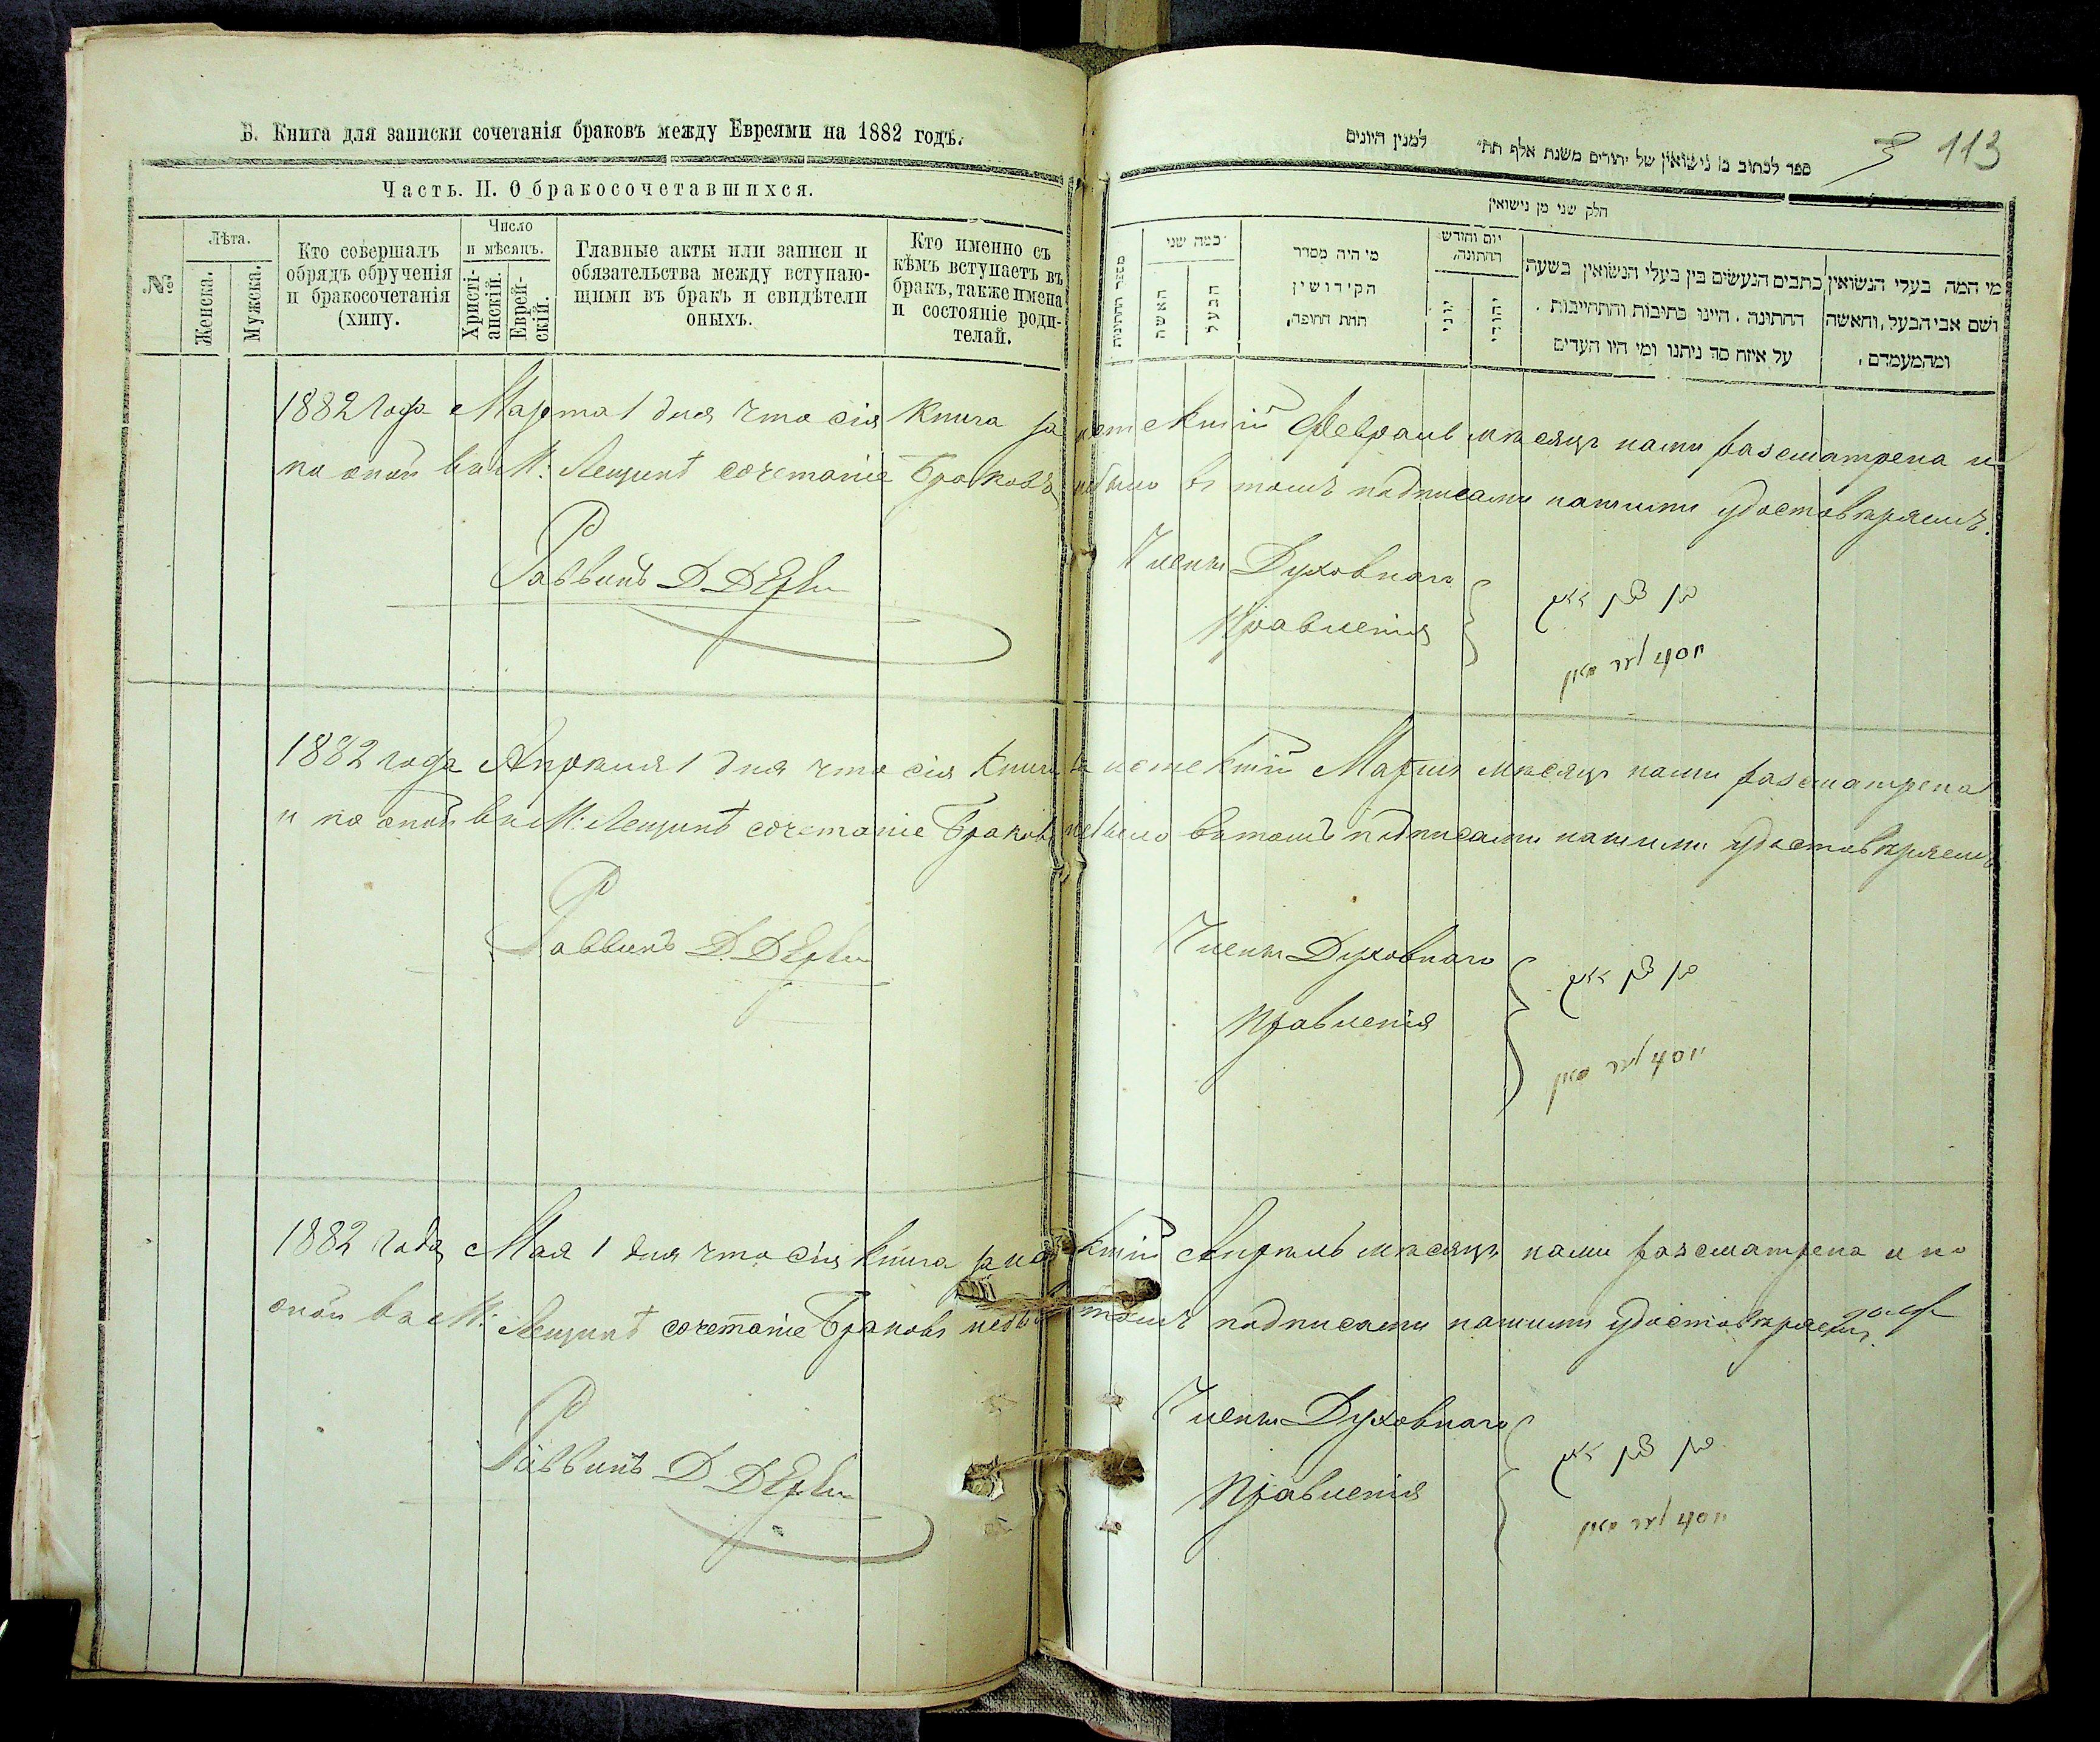 Б. Книга для записки сочетанія браковъ между Евреями на 1882 годъ.
Часть. II. О бракосочетавшихся.
№
Лѣта.
Женска.
Мужска.
Кто совершалъ
обрядъ обрученія
и бракосочетанія
(хипу.
Число
и мѣсяцъ.
Христі-
анскій.
Еврей-
скій.
Главные акты или записи и
обязательства между вступаю-
щими въ бракъ и свидѣтели
оныхъ.
Кто именно съ
кѣмъ вступаетъ въ
бракъ, также имена
и состояніе роди-
телай.
113
ספר לכתוב בו נישואין של יהודים משנת אלף תת״ למנין היונים
חלק שני מן נישואין
מספר החתונות
כמה שני
האשה
הבעל
מי היה מסדר
הקידושין
תחת החופה,
יום וחודש
החתונה,
יוני
יהודי
כתבים הנעשים בין בעלי הנשואין בשעת
החתונה. היינו כתובות והתחייבות.
על איזה סך ניתנו ומי היו העדים
מי המה בעלי הנשואין
ושם אבי הבעל, והאשה
ומהמעמדם,
1882 года Марта 1 дня что сія книга за истекшій Февраль мѣсяцъ нами разсматрена и
по оной въ М: Лещинѣ сочетаніе Браковъ небыло въ томъ подписами нашими удостовѣряемъ.
Раввинъ Д.
Члены Духовнаго
Правленія
יוסף
1882 года Апрѣля 1 дня что сія книга за истекшій Мартъ мѣсяцъ нами разсматрена
и по оной въ М: Лещинѣ сочетаніе Браковъ небыло въ томъ подписами нашими удостовѣряемъ
Раввинъ Д.
Члены Духовнаго
Правленія
יוסף
1882 года Мая 1 дня что сія книга за кшій Апрѣль мѣсяцъ нами разсматрена и по
оной въ М: Лещинѣ сочетаніе Браковъ томъ подписами нашими удостовѣряемъ
Раввинъ Д.
Члены Духовнаго
Правленія
יוסף